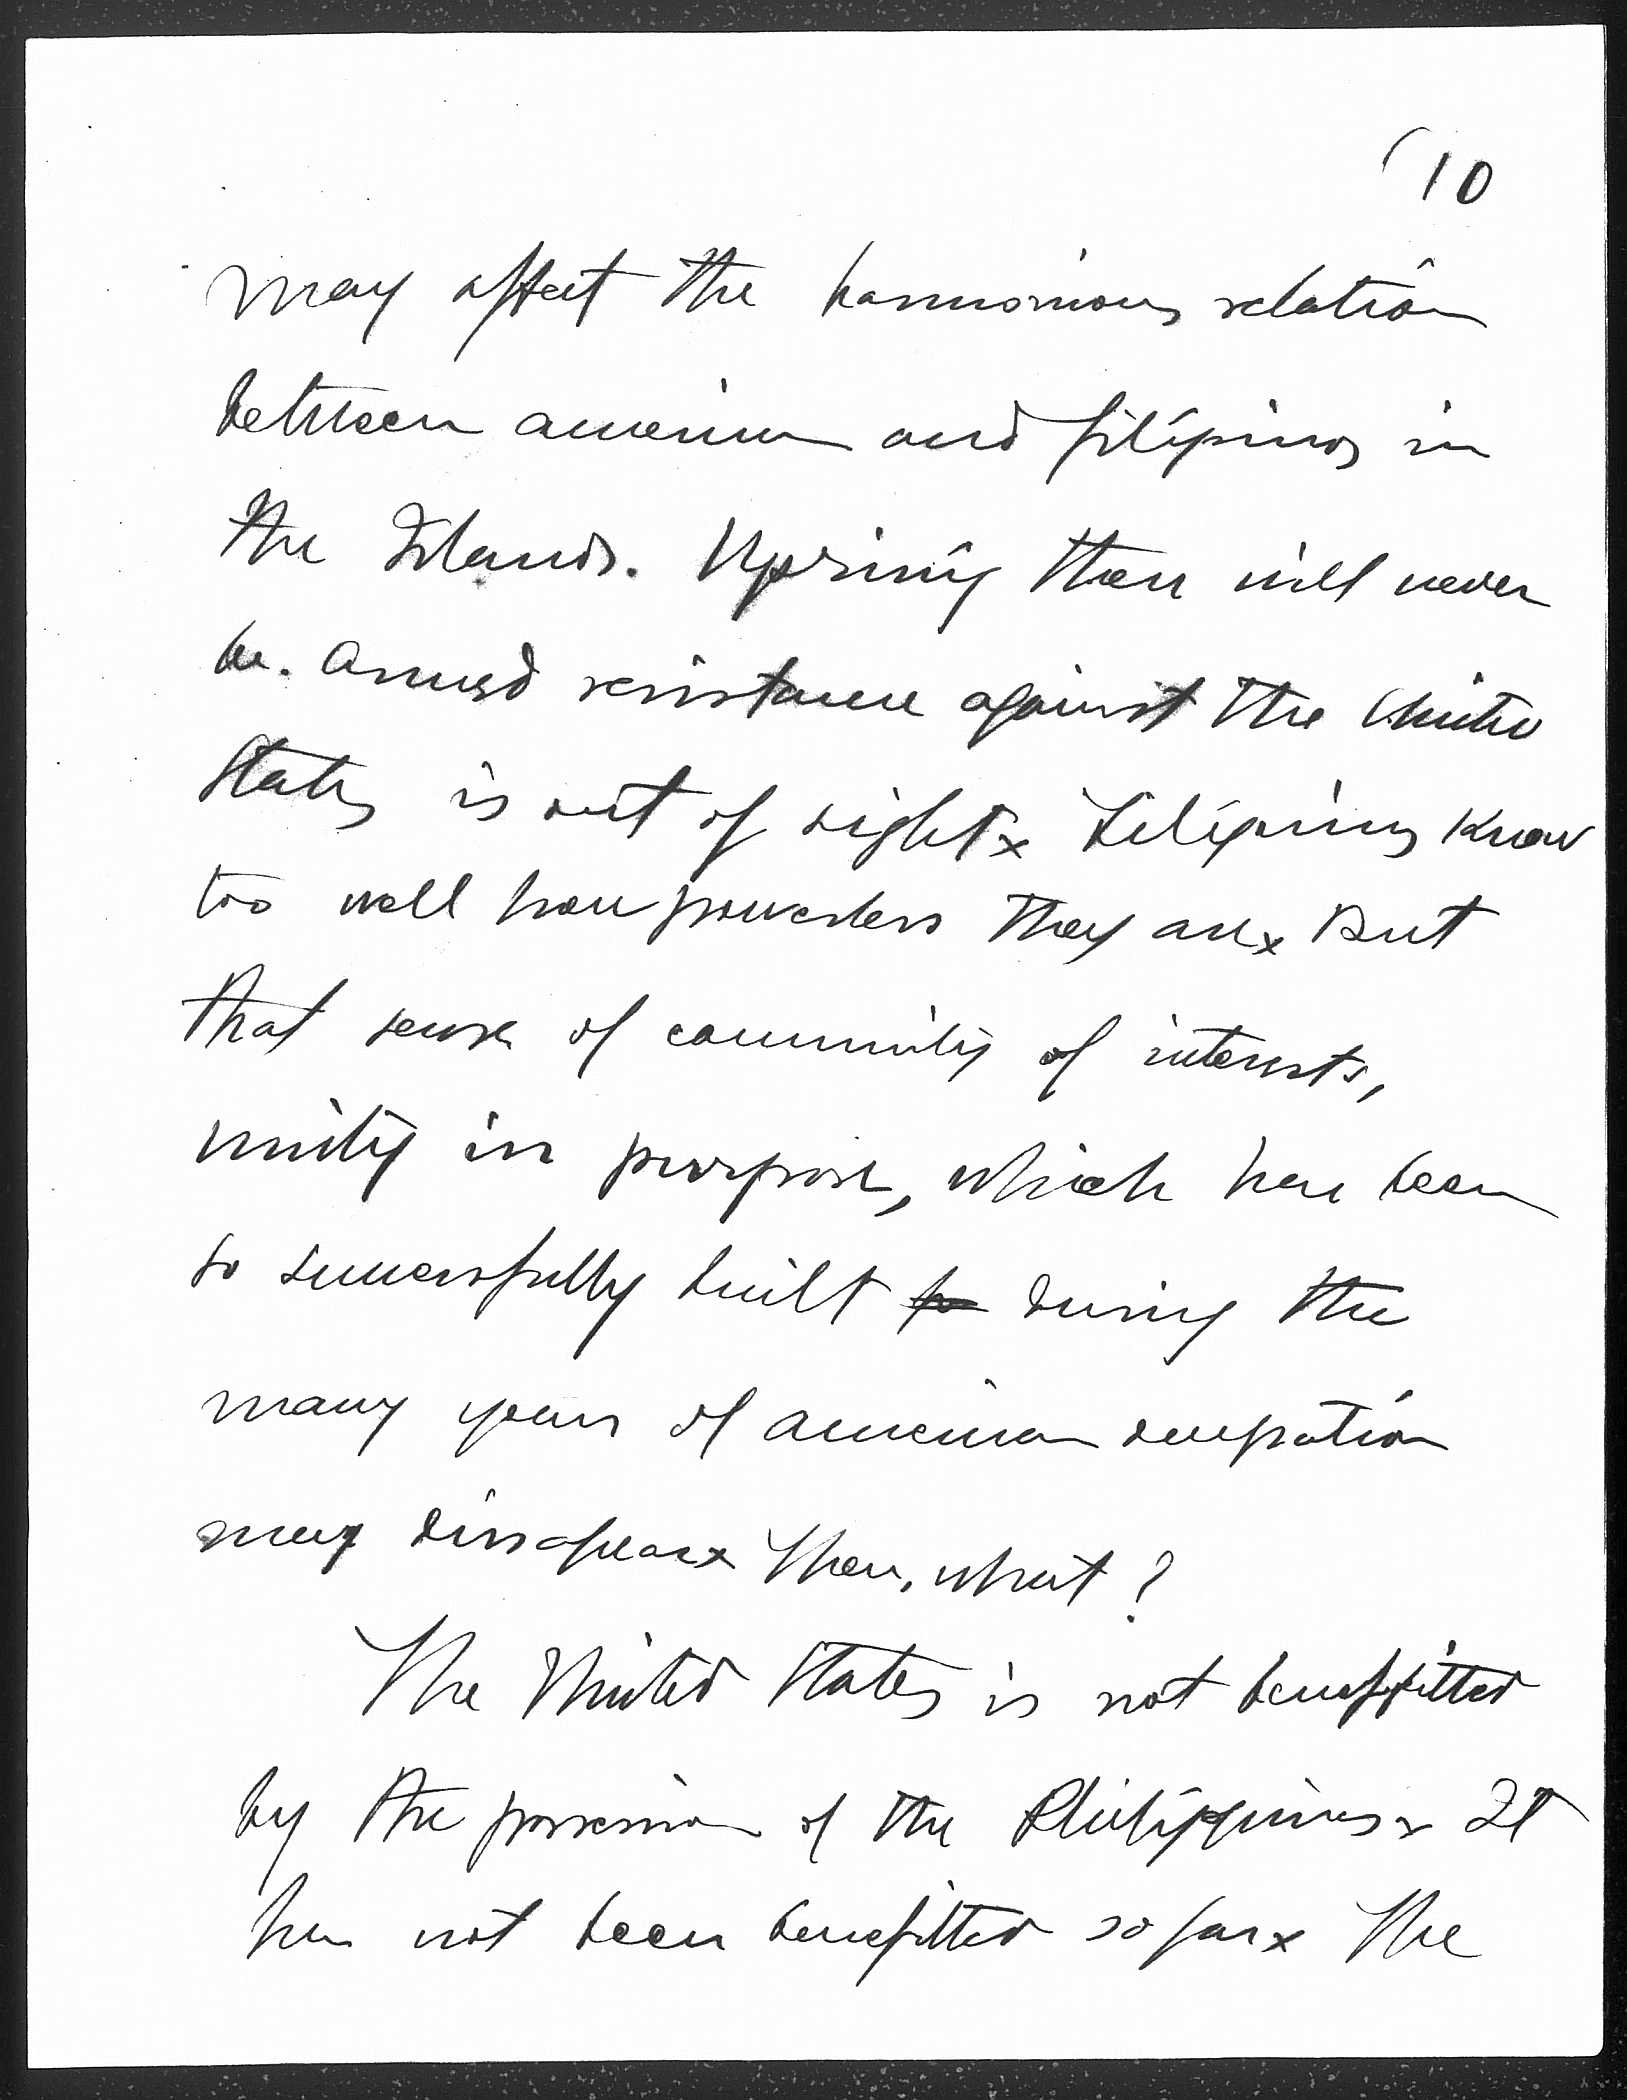 10
may affect the harmonious relation
between american and filipinos in
the Islands. Uprising there will never
be. Armed resistance against the United
States is out of sight x Filipinos know
too well how powerless they are x But
that sense of community of interests,
unity in purpose, which have been
so successfully built during the
many years of american occupation
may dissapear x Then, what?
The United States is not beneffitted
by the possession of the Philippines x It
has not been benefitted so far x The